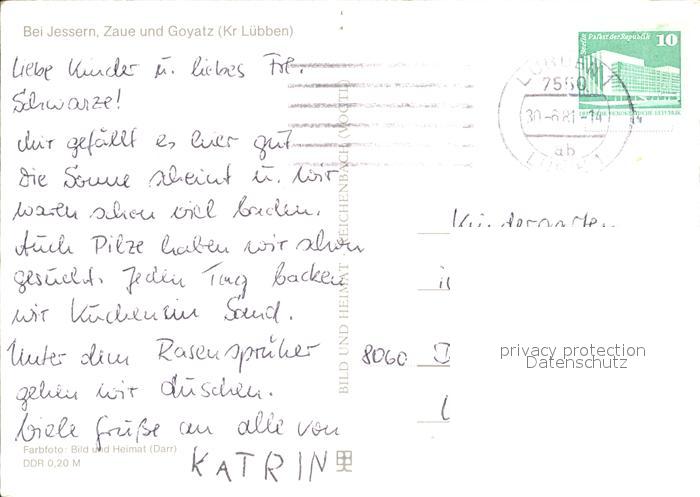 Bei Jessern, Zaue und Goyatz (Kr Lübben)
Liebe Kinder u. liebes Frl.
Schwarze!
Mir gefällt es hier gut
Die Sonne scheint u. wir
waren schon viel baden.
Auch Pilze haben wir schon
gesucht. Jeden Tag backen
wir Kuchen im Sand.
Unter dem Rasensprüher
gehen wir duschen.
Viele Grüße an alle von
KATRIN
Farbfoto: Bild und Heimat (Darr)
DDR 0,20 M
BILD UND HEIMAT · REICHENBACH (VOGTL)
Berlin Palast der Republik 10
LÜBBEN 1
7550
30.-6.81-14
ab
Kindergarten
8060
privacy protection
Datenschutz